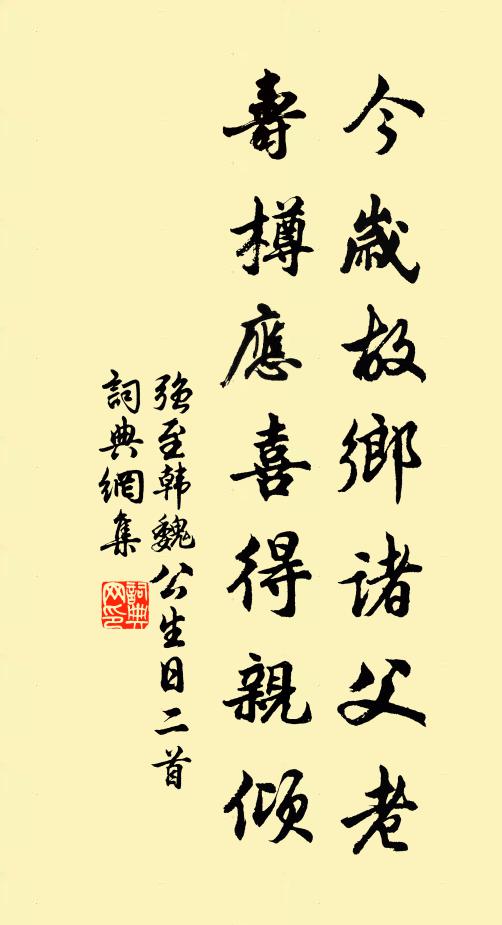 今歲故鄉諸父老
壽樽應喜得親傾
強至韩魏公生日二首
詞典網集
詞典网印